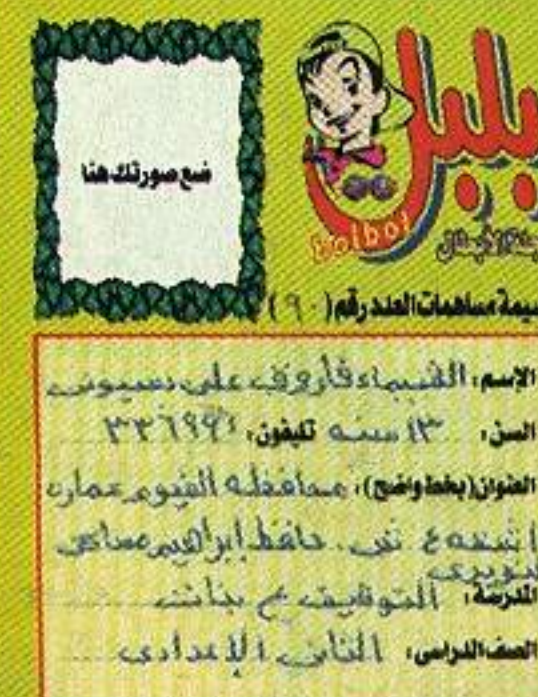 ضع صورتك هنا
بلبل
bolbol
مساهمات العدد رقم (٩٠)
الإسم: الشيماء فاروق على بسيونى
السن: ١٣ سنه تليفون: ٣٣٦٩٩١
العنوان (بخط واضح): محافظه الفيوم عماره
حافظ إبراهيم
المدرسة: بنات
الصف الدراسى: الثانى الإعدادى